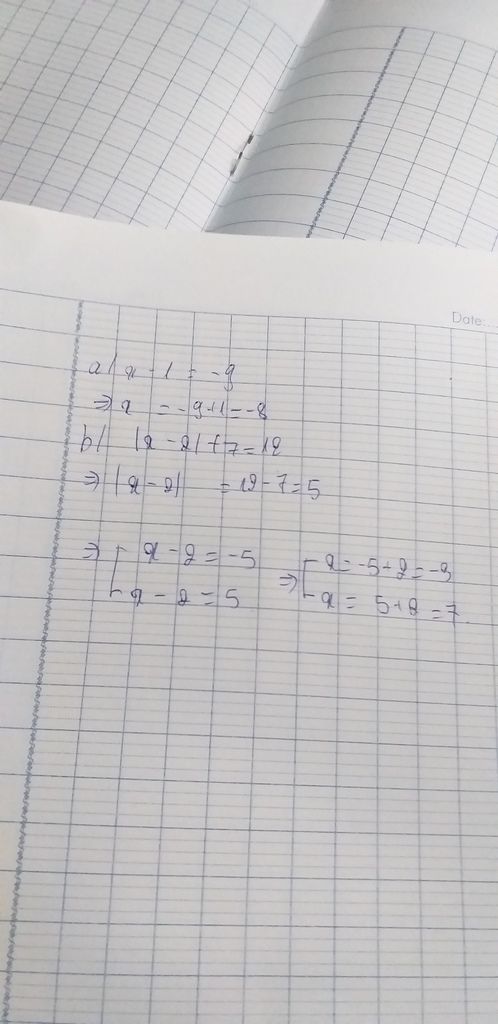 Date:
a) x - 1 = -9
=> x = -9+1 = -8
b) |x - 2| + 7 = 12
=> |x - 2| = 12 - 7 = 5
=> [ x - 2 = -5 => [ x = -5+2 = -3
x - 2 = 5 x = 5+2 = 7